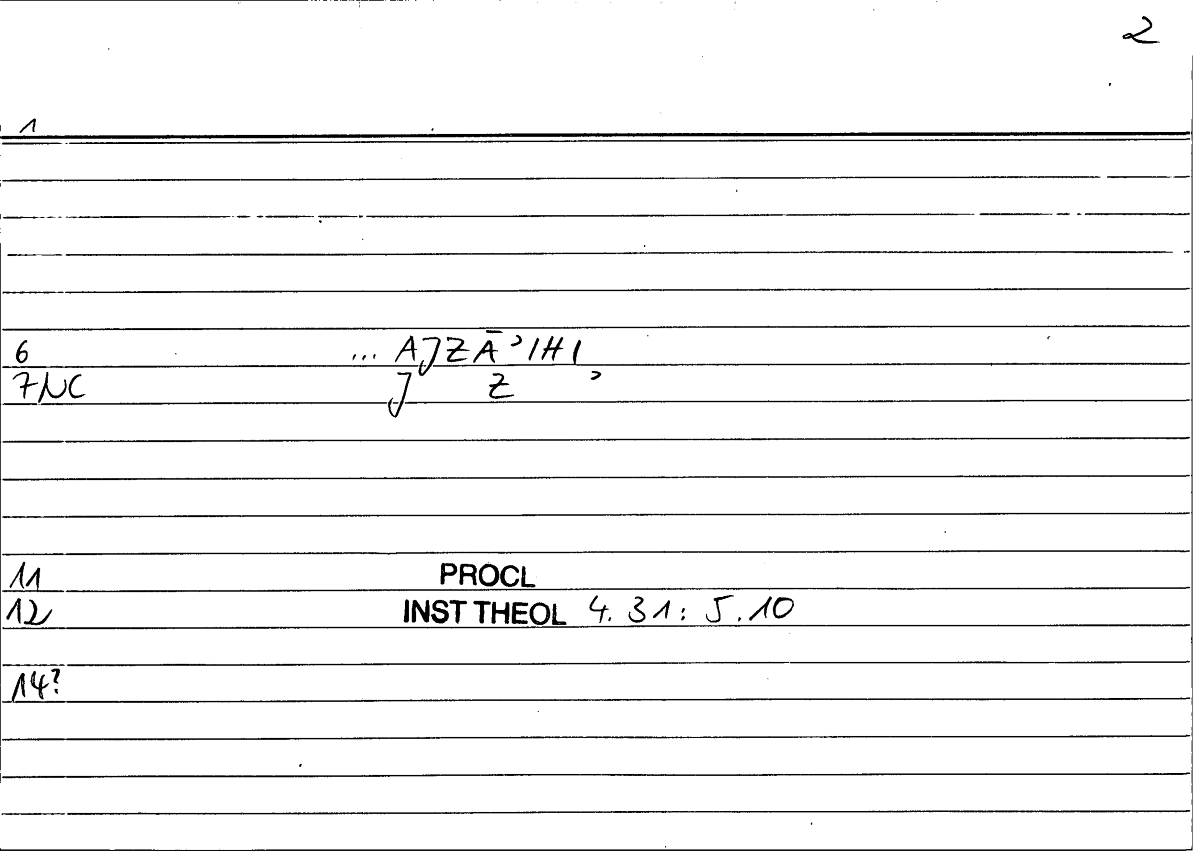 2
1
6 ... AJZĀ'IHI
7NC J Z '
11 PROCL
12 INST THEOL 4.31: 5.10
14?